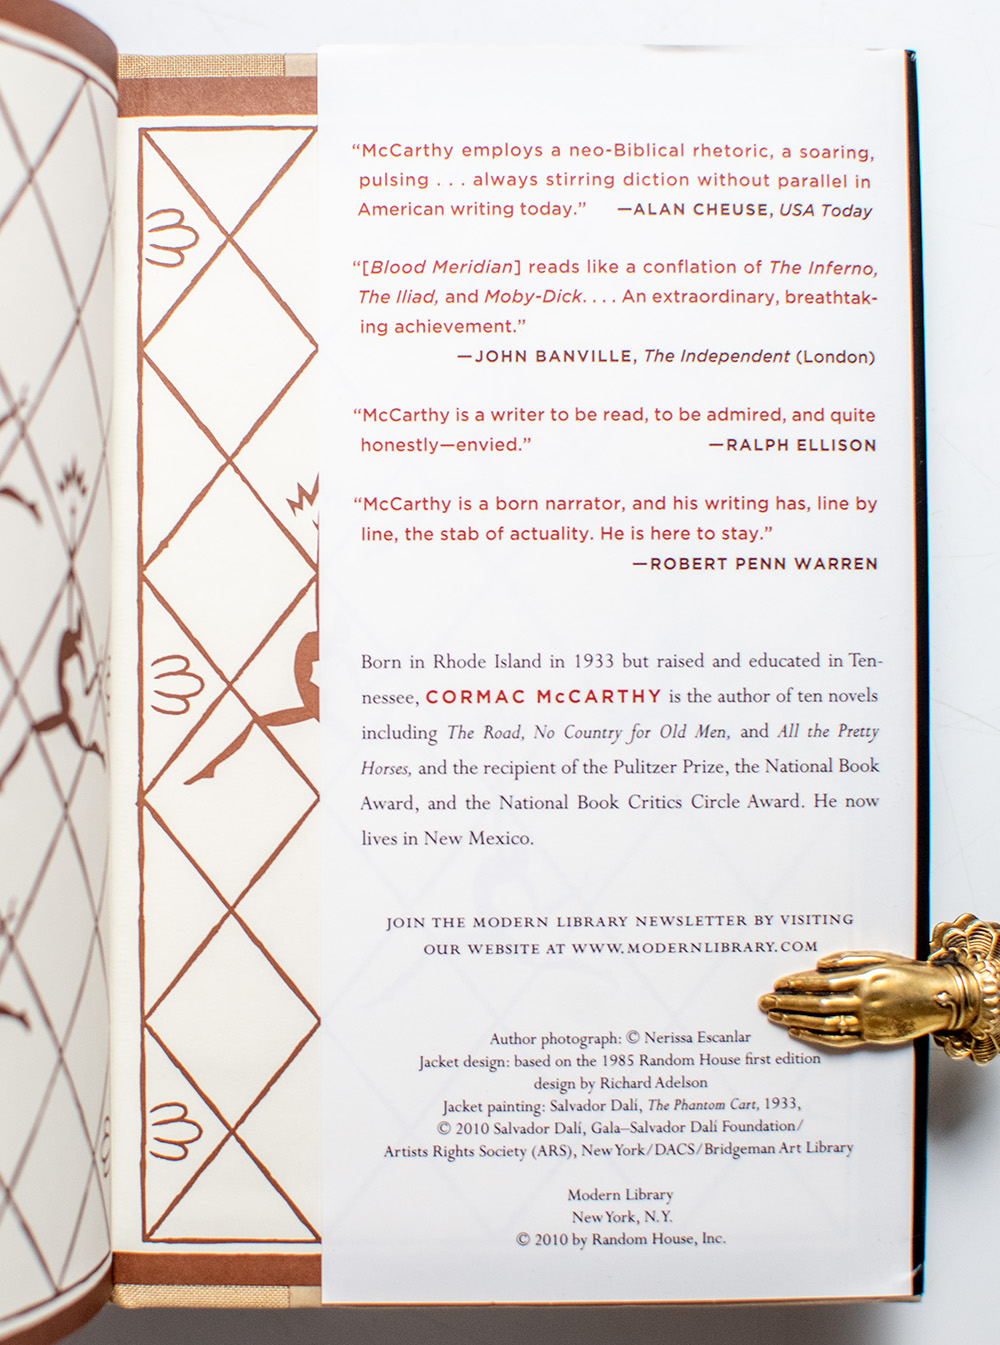 “McCarthy employs a neo-Biblical rhetoric, a soaring,
pulsing . . . always stirring diction without parallel in
American writing today.” —ALAN CHEUSE, USA Today
“[Blood Meridian] reads like a conflation of The Inferno,
The Iliad, and Moby-Dick. . . . An extraordinary, breathtak-
ing achievement.”
—JOHN BANVILLE, The Independent (London)
“McCarthy is a writer to be read, to be admired, and quite
honestly—envied.” —RALPH ELLISON
“McCarthy is a born narrator, and his writing has, line by
line, the stab of actuality. He is here to stay.”
—ROBERT PENN WARREN
Born in Rhode Island in 1933 but raised and educated in Ten-
nessee, CORMAC McCARTHY is the author of ten novels
including The Road, No Country for Old Men, and All the Pretty
Horses, and the recipient of the Pulitzer Prize, the National Book
Award, and the National Book Critics Circle Award. He now
lives in New Mexico.
JOIN THE MODERN LIBRARY NEWSLETTER BY VISITING
OUR WEBSITE AT WWW.MODERNLIBRARY.COM
Author photograph: © Nerissa Escanlar
Jacket design: based on the 1985 Random House first edition
design by Richard Adelson
Jacket painting: Salvador Dalí, The Phantom Cart, 1933,
© 2010 Salvador Dalí, Gala–Salvador Dalí Foundation/
Artists Rights Society (ARS), New York/DACS/Bridgeman Art Library
Modern Library
New York, N.Y.
© 2010 by Random House, Inc.